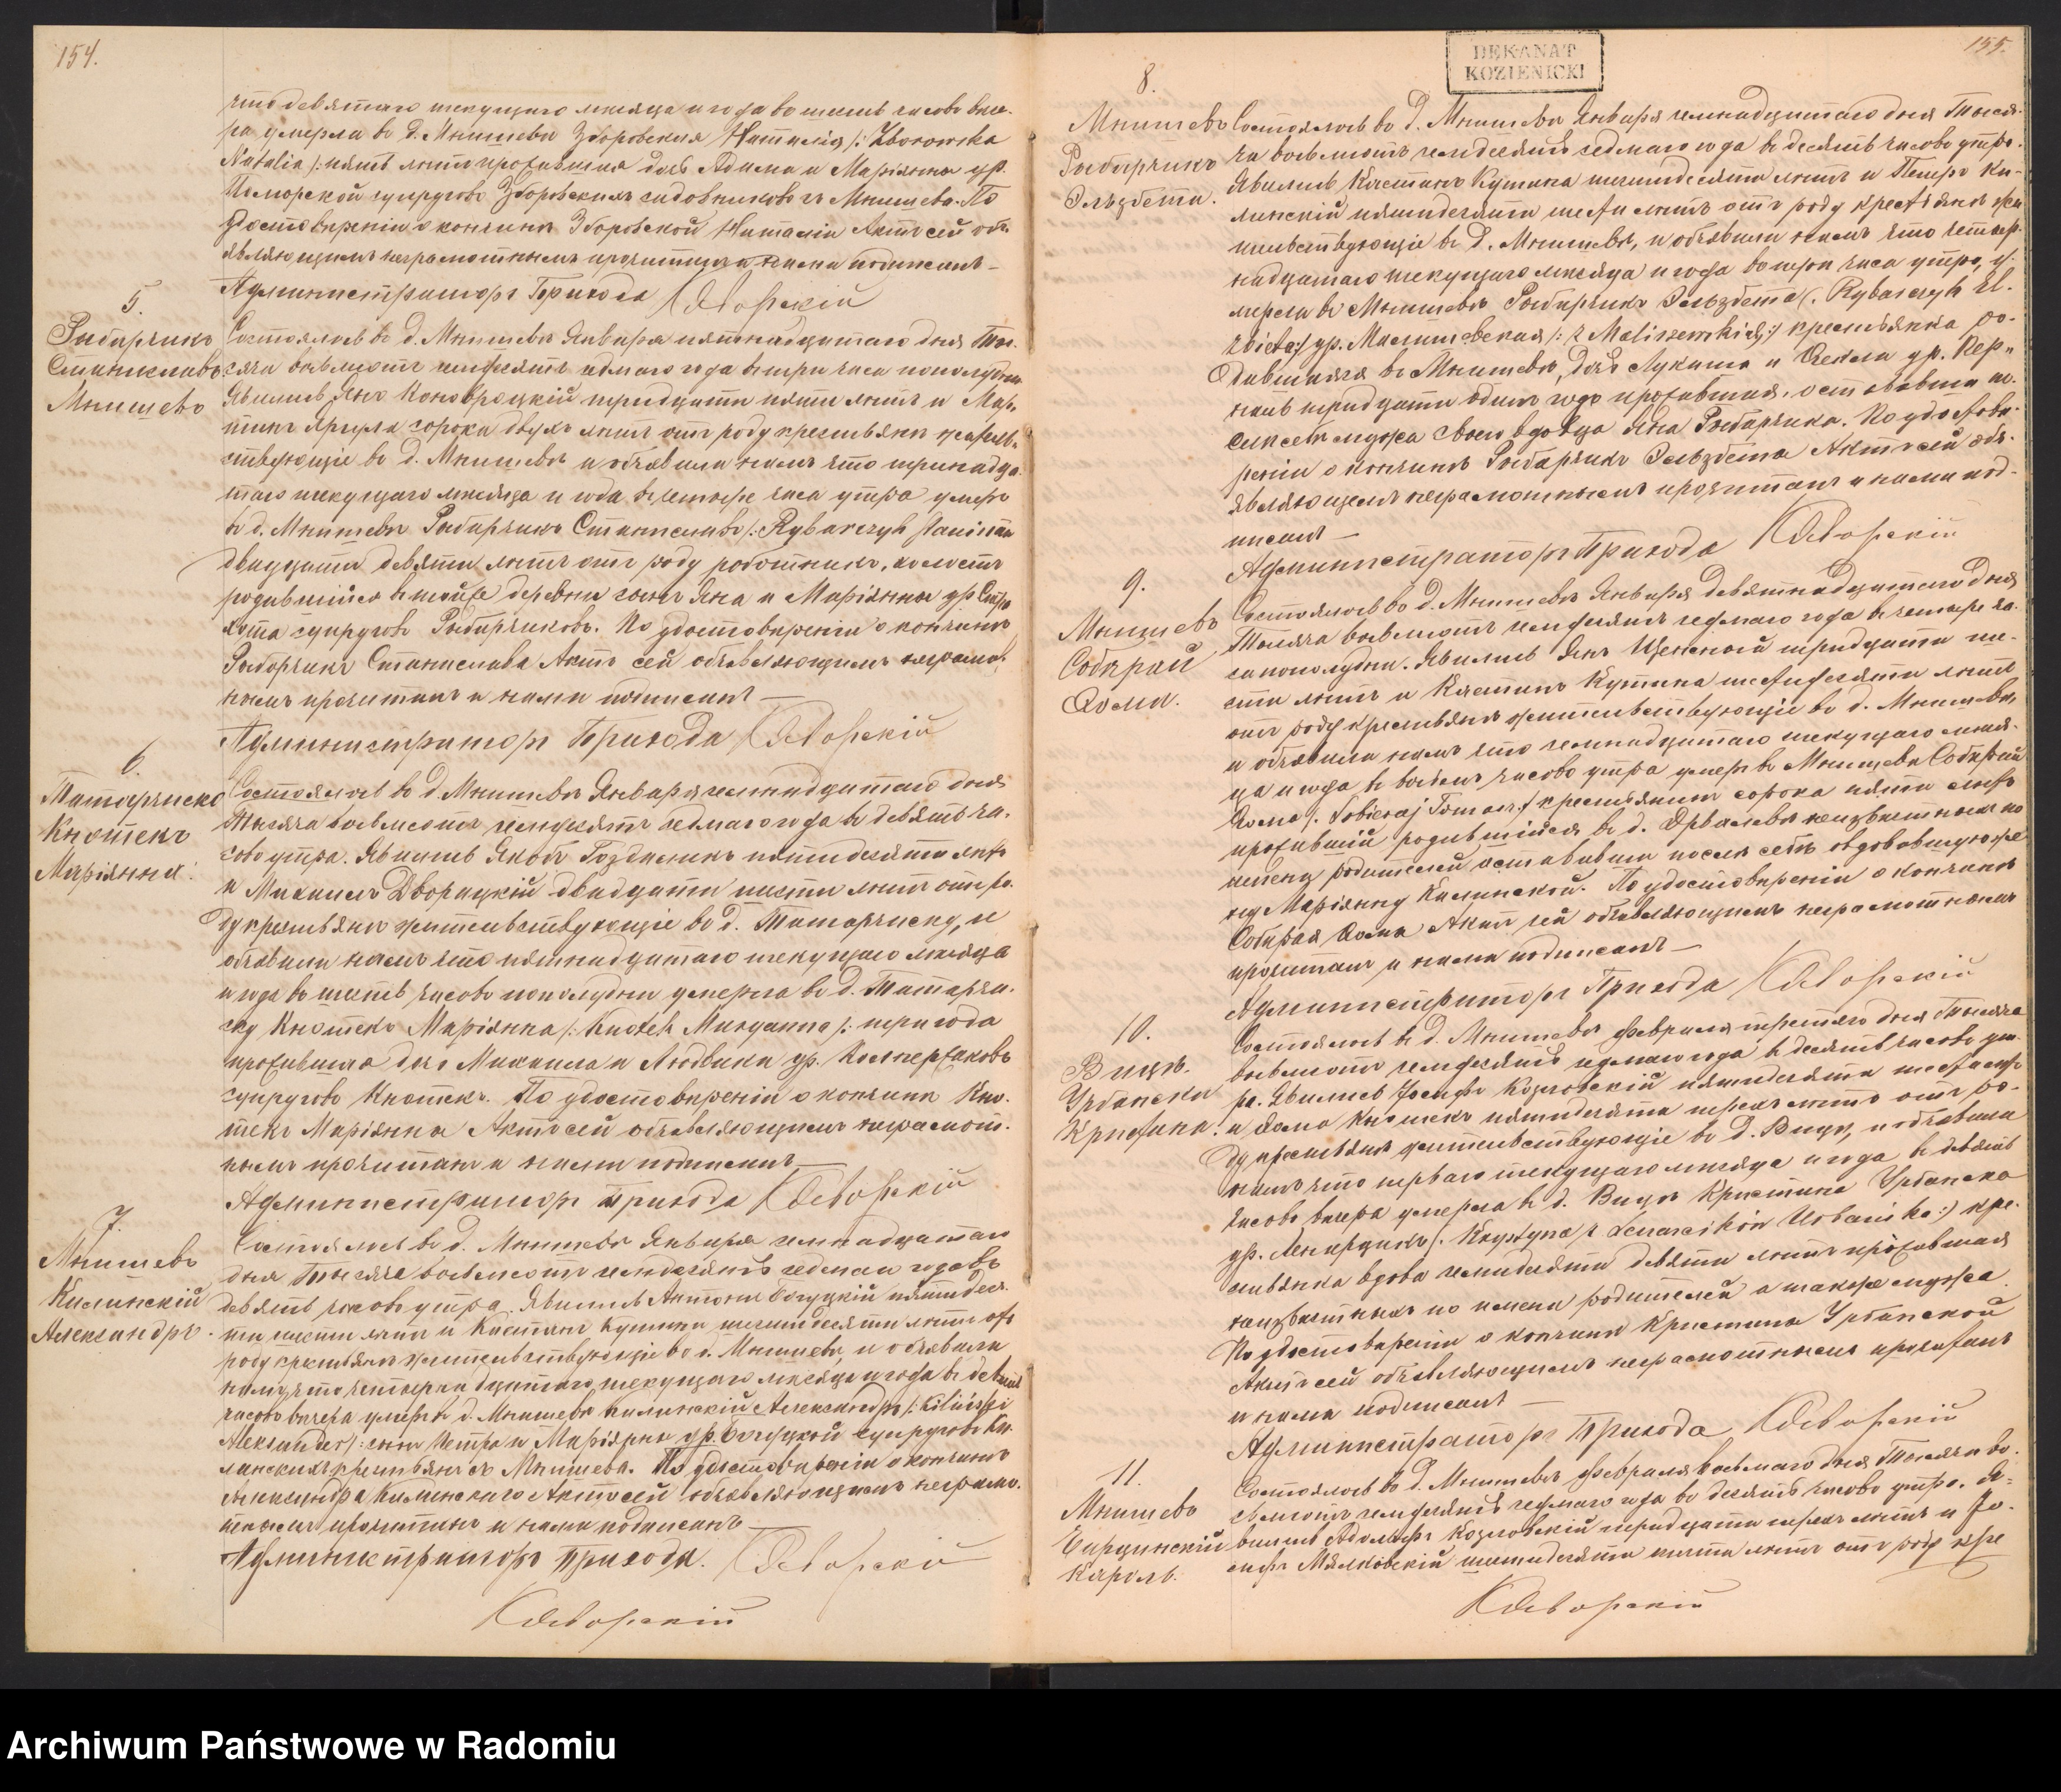 154.
что девятаго текущаго месяца и года во шесть часовъ вече-
ра умерла въ д. Мнишевъ Зборовская Наталія /: Zborowska
Natalia /: пять летъ прожившая дочь Адама и Маріянны ур.
Поморской супруговъ Зборовскихъ садовниковъ въ Мнишевъ. По
удостовереніи о кончине Зборовской Наталіи Актъ сей объ-
являющимъ неграмотнымъ прочитанъ и нами подписанъ —
Администраторъ Прихода К Яворскій
5.
Рыбарчикъ
Станиславъ
Мнишевъ
Состоялось въ д. Мнишевъ Января пятнадцатаго дня Ты-
сяча восьмсотъ семдесятъ седмаго года въ три часа пополудни
Явились Янъ Коновроцкій тридцати пяти летъ и Мар-
тинъ Яргула сорока двухъ летъ отъ роду крестьяне жительъ-
ствующіе въ д. Мнишевъ и объявили намъ что тринадца-
таго текущаго месяца и года въ четыре часа утра умеръ
въ д. Мнишевъ Рыбарчикъ Станиславъ /: Rybarczyk Stanisław
двадцати девяти летъ отъ роду работникъ, холостъ
родившійся въ тойже деревне сынъ Яна и Маріянны ур.
супруговъ Рыбарчиковъ. По удостовереніи о кончине
Рыбарчикъ Станислава Актъ сей объявляющимъ неграмот-
нымъ прочитанъ и нами подписанъ —
Администраторъ Прихода К Яворскій
6.
Татарчиско
Кнотекъ
Маріянна.
Состоялось въ д. Мнишевъ Января семнадцатаго дня
Тысяча восьмсотъ семдесятъ седмаго года въ девять ча-
совъ утра. Явились Якобъ Гоздзикъ пятидесяти летъ
и Михаилъ Дворацкій двадцати шести летъ отъ ро-
ду крестьяне жительствующіе въ д. Татарчиску, и
объявили намъ что пятнадцатаго текущаго месяца
и года въ шесть часовъ пополудни умерла въ д. Татарчи-
ску Кнотекъ Маріянна /: Knotek Maryanna /: три года
прожившая дочь Михаила и Людвики ур. Каспержаковъ
супруговъ Кнотекъ. По удостовереніи о кончине Кно-
текъ Маріянны Актъ сей объявляющимъ неграмот-
нымъ прочитанъ и нами подписанъ —
Администраторъ Прихода К Яворскій
7.
Мнишевъ
Килинскій
Александръ.
Состоялось въ д. Мнишевъ Января семнадцатаго
дня Тысяча восьмсотъ семдесятъ седмаго года въ
девять часовъ утра. Явились Антони Богуцкій пятидеся-
ти шести летъ и Каетанъ Кутина шестидесяти летъ отъ
роду крестьяне жительствующіе въ д. Мнишевъ, и объявили
намъ что четырнадцатаго текущаго месяца и года въ девять
часовъ вечера умеръ въ д. Мнишевъ Килинскій Александръ /: Kiliński
Alexander /: сынъ Петра и Маріянны ур. Богуцкой супруговъ Ки-
линскихъ крестьянъ съ Мнишева. По удостовереніи о кончине
Александра Килинскаго Актъ сей объявляющимъ неграмо-
тнымъ прочитанъ и нами подписанъ —
Администраторъ Прихода. К Яворскій
К Яворскій
DEKANAT
KOZIENICKI
155.
8.
Мнишевъ
Рыбарчикъ
Эльзбета.
Состоялось въ д. Мнишевъ Января семнадцатаго дня Тыся-
ча восьмсотъ семдесятъ седмаго года въ десять часовъ утра.
Явились Каетанъ Кутина шестидесяти летъ и Петръ Ки-
линскій пятидесяти шести летъ отъ роду крестьяне жи-
тельствующіе въ д. Мнишевъ, и объявили намъ что четыр-
надцатаго текущаго месяца и года во три часа утра, у-
мерла въ Мнишевъ Рыбарчикъ Эльзбета /: Rybarczyk El-
żbieta :/ ур. Малишевская /: z Maliszewskich :/ крестьянка ро-
дившаяся въ Мнишевъ, дочь Лукаша и Феклы ур.
тридцати одинъ годъ прожившая, оставивши по-
сле себя мужа своего вдовца Яна Рыбарчика. По удостове-
реніи о кончине Рыбарчикъ Эльзбета Актъ сей объ-
являющимъ неграмотнымъ прочитанъ и нами под-
писанъ —
Администраторъ Прихода К Яворскій
9.
Мнишевъ
Собирай
Фома.
Состоялось въ д. Мнишевъ Января девятнадцатаго дня
Тысяча восьмсотъ семдесятъ седмаго года въ четыре ча-
са пополудни. Явились Янъ Щенсный тридцати ше-
сти летъ и Каетанъ Кутина шестидесяти летъ
отъ роду крестьяне жительствующіе въ д. Мнишевъ,
и объявили намъ что семнадцатаго текущаго меся-
ца и года въ восемь часовъ утра умеръ въ Мнишевъ Собирай
Фома /: Sobieraj Tomasz :/ крестьянинъ сорока пяти летъ
проживший родившійся въ д. неизвестныхъ по
имени родителей оставивши после себя овдовевшую же-
ну Маріянну Килинской. По удостовереніи о кончине
Собирая Фома Актъ сей объявляющимъ неграмотнымъ
прочитанъ и нами подписанъ —
Администраторъ Прихода К Яворскій
10.
Вицъ.
Урбанска
Кристина.
Состоялось въ д. Мнишевъ Февраля третяго дня Тысяча
восьмсотъ семдесятъ седмаго года въ десять часовъ ут-
ра. Явились Іосифъ Козловскій пятидесяти шести летъ
и Фома Кнотекъ пятидесяти трехъ летъ отъ ро-
ду крестьяне жительствующіе въ д. Вицъ, и объявили
намъ что перваго текущаго месяца и года въ девять
часовъ вечера умерла въ д. Вицъ Кристина Урбанска
ур. Ленарцикъ /: Krystyna z Lenarcików Urbańska :/ кре-
стьянка вдова семидесяти девяти летъ прожившая
неизвестныхъ по имени родителей а также мужа.
По удостовереніи о кончине Кристины Урбанской
Актъ сей объявляющимъ неграмотнымъ прочитанъ
и нами подписанъ —
Администраторъ Прихода К Яворскій
11.
Мнишевъ
Кароль.
Состоялось въ д. Мнишевъ Февраля восьмаго дня Тысяча во-
сьмсотъ семдесятъ седмаго года въ десять часовъ утра. Я-
вились Адольфъ Козловскій тридцати трехъ летъ и Іо-
сифъ Мялковскій шестидесяти шести летъ отъ роду кре
К Яворскій
Archiwum Państwowe w Radomiu